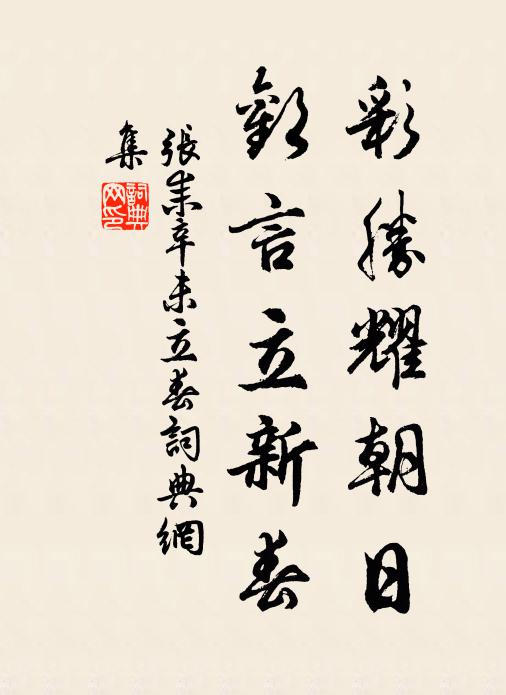 彩勝耀朝日
歡言立新春
張耒辛未立春詞典網
集
詞典网印